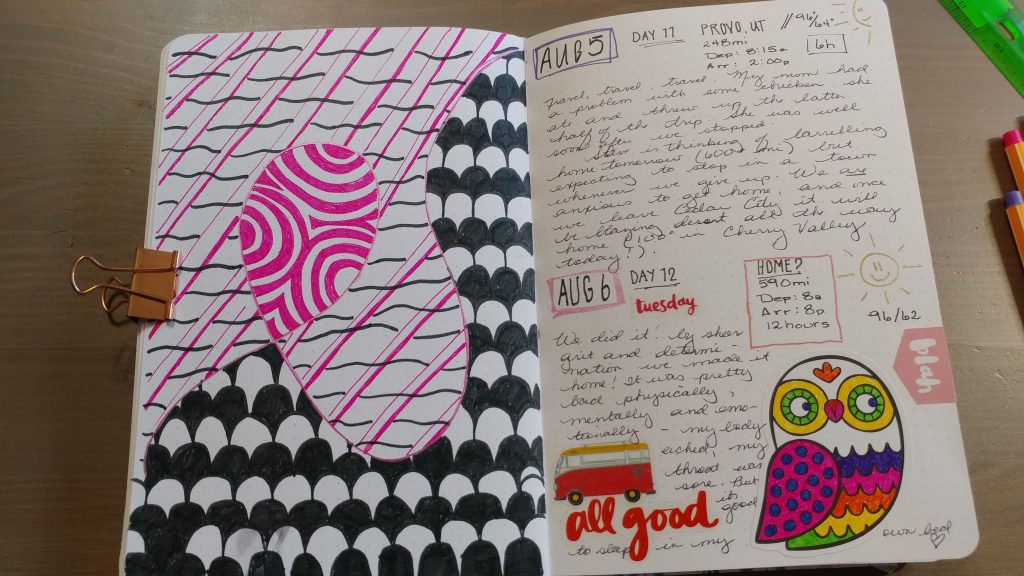 AUG 5 DAY 11 PROVO, UT // 96/64
248mi 6h
Dep: 8:15a
Arr: 2:00p
Travel, travel, travel. My mom had
a problem with some chicken she
ate and threw up the latter
half of the trip. She was well
soon after we stopped.
Stan is thinking of barrelling
home tomorrow (600+ mi) but
expecting to stop in a town
whenever we give up. We are
anxious to get home, and once
we leave Cedar City it will
be blazing desert all the way
home (108° in Cherry Valley
today!).
AUG 6 DAY 12
Tuesday
HOME?
590mi
Dep: 8a
Arr: 8p
12hours
96/62
We did it! By sheer
grit and determi-
nation we made it
home! It was pretty
bad physically,
mentally and emo-
tionally - my body
ached, my
throat was
sore. But
it's
good
to sleep in my
own bed
all good
blah